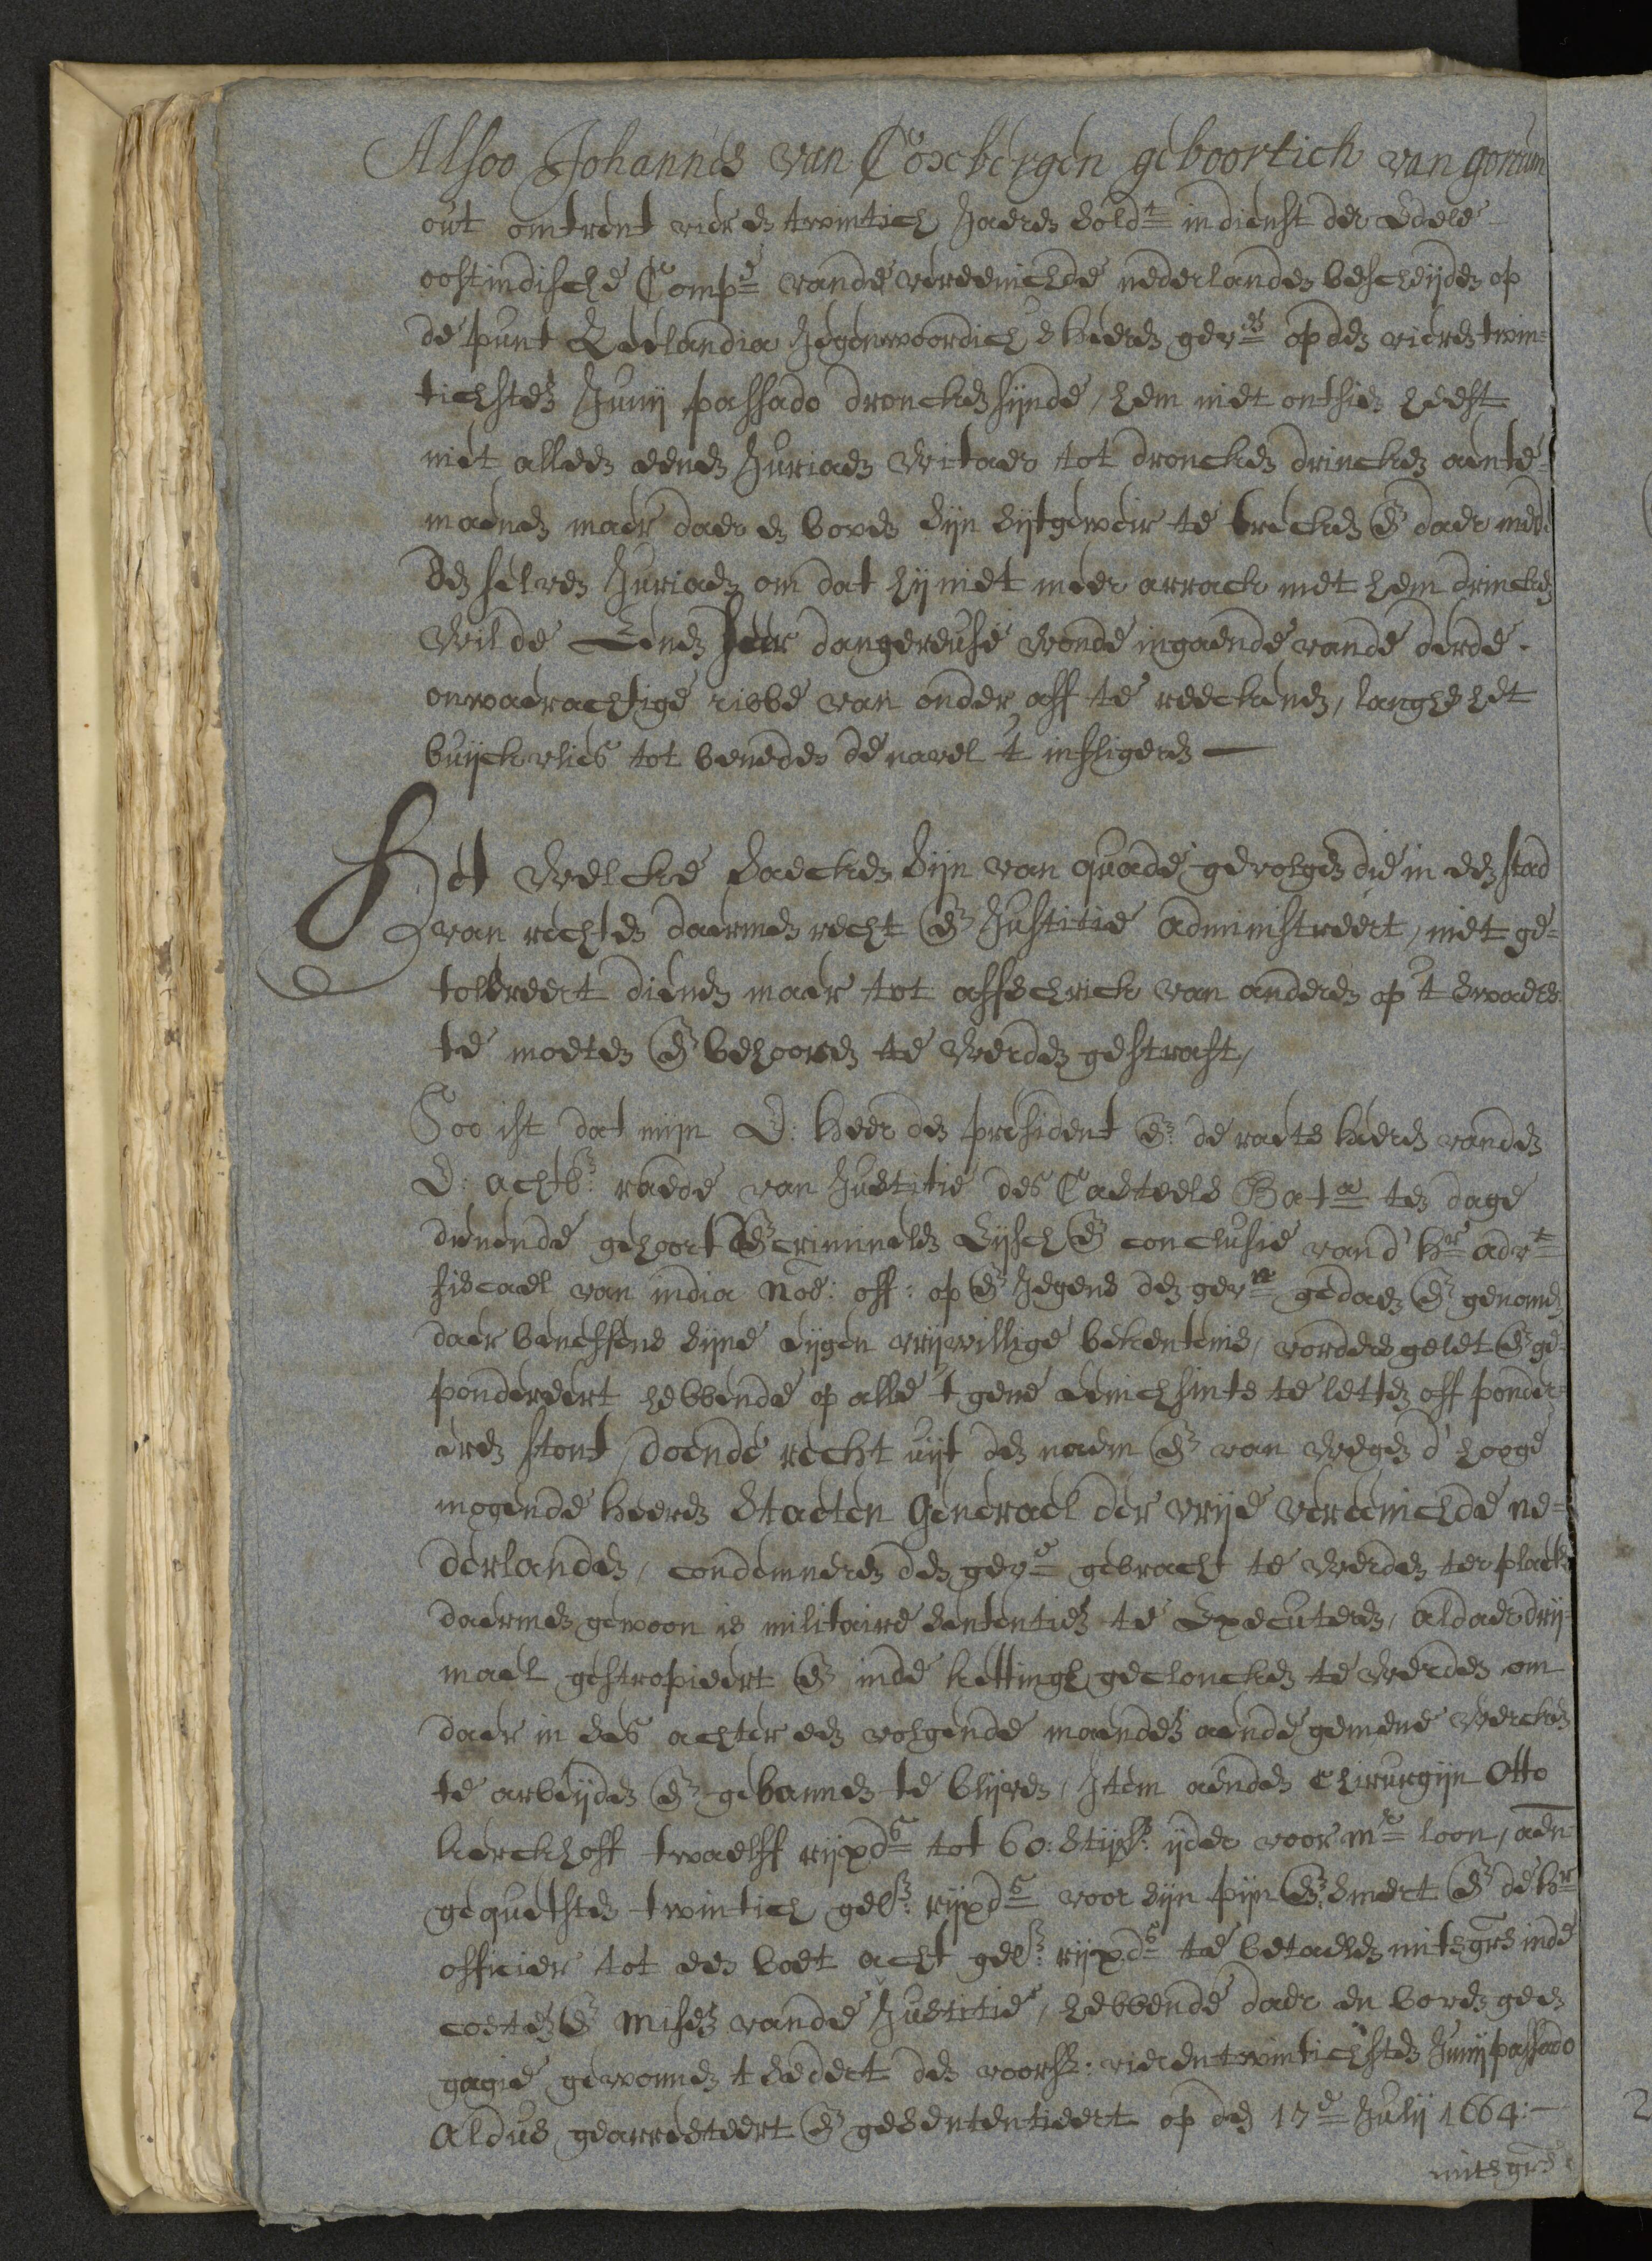 Alsoo Johannes van Coxbergen geboortich van gorcum
out omtrent vier en twintich Jaeren Soldt in dienst der Edele
oostindische Compe vande vereenichde nederlanden bescheijden op
de punt Zeelandia Jegenwoordich 's heeren gevs op den vier en twin=
tichsten Junij passado droncken sijnde, hem niet ontsien heeft
niet alleen eenen Juriaen tot droncken drincken aente=
maenen maer daer en boven sijn sijtgeweir te trecken en daer mede
den selven Juriaen om dat hij niet meer arrack met hem drincken
wilde Eenen seer dangereuse wonde ingaende vande derde
onwaerachtige ribbe van onder aff te reeckenen, langhs het
buijckvlies tot beneden de navel t' infligeren —
Het welcke saecken sijn van quade gevolgen die in een stad
van rechten daermen recht en Justitie administreert, niet ge=
tollereert dienen maer tot affschrick van anderen op 't swaerste
te moeten en behooren te werden gestraft,
Soo ist dat mijn E: heer den president en: de raets heeren vanden
E: achtb: raede van Justitie des Casteels Bata ten dage
dienende gehoort en criminelen Eijsch en conclusie vand' hr advt
fiscael van india noe: off: op en Jegens den gevn gedaen en genomen
daer beneffens sijne eijgen vrijwillige bekentenis, vorders gelet en ge=
pondereert hebbende op alle 't gene eenichsints te letten off ponder=
eren stont, doende recht uijt den naem en van wegen d' hooge
mogende heeren Staeten Generael der vrije vereenichde ne=
derlanden, condemneren den geve gebracht te werden ter plaetse
daermen gewoon is militaire sententien te Executeren, aldaer drij=
mael gestropieert en inde kettingh gecloncken te werden om
daer in ses achter een volgende maenden aende gemene wercken
te arbeijden en gebannen te blijven, Item aenden Chirurgijn Otto
kerckhoff twaelff rijxds tot 60: stijvs: ijder voor mr loon, aen
gequetsten twintich gels: rijxds voor sijn pijn en smert en de hr
officier tot een boet acht gels: rijxds te betaelen mitsgrs inde
costen en misen vande Justitie, hebbende daer en boven geen
gagie gewonnen t sedert den voors: vierentwintichsten Junij passado
Aldus gearresteert en gesententieert op den 17e Julij 1664: —
mitsgrs